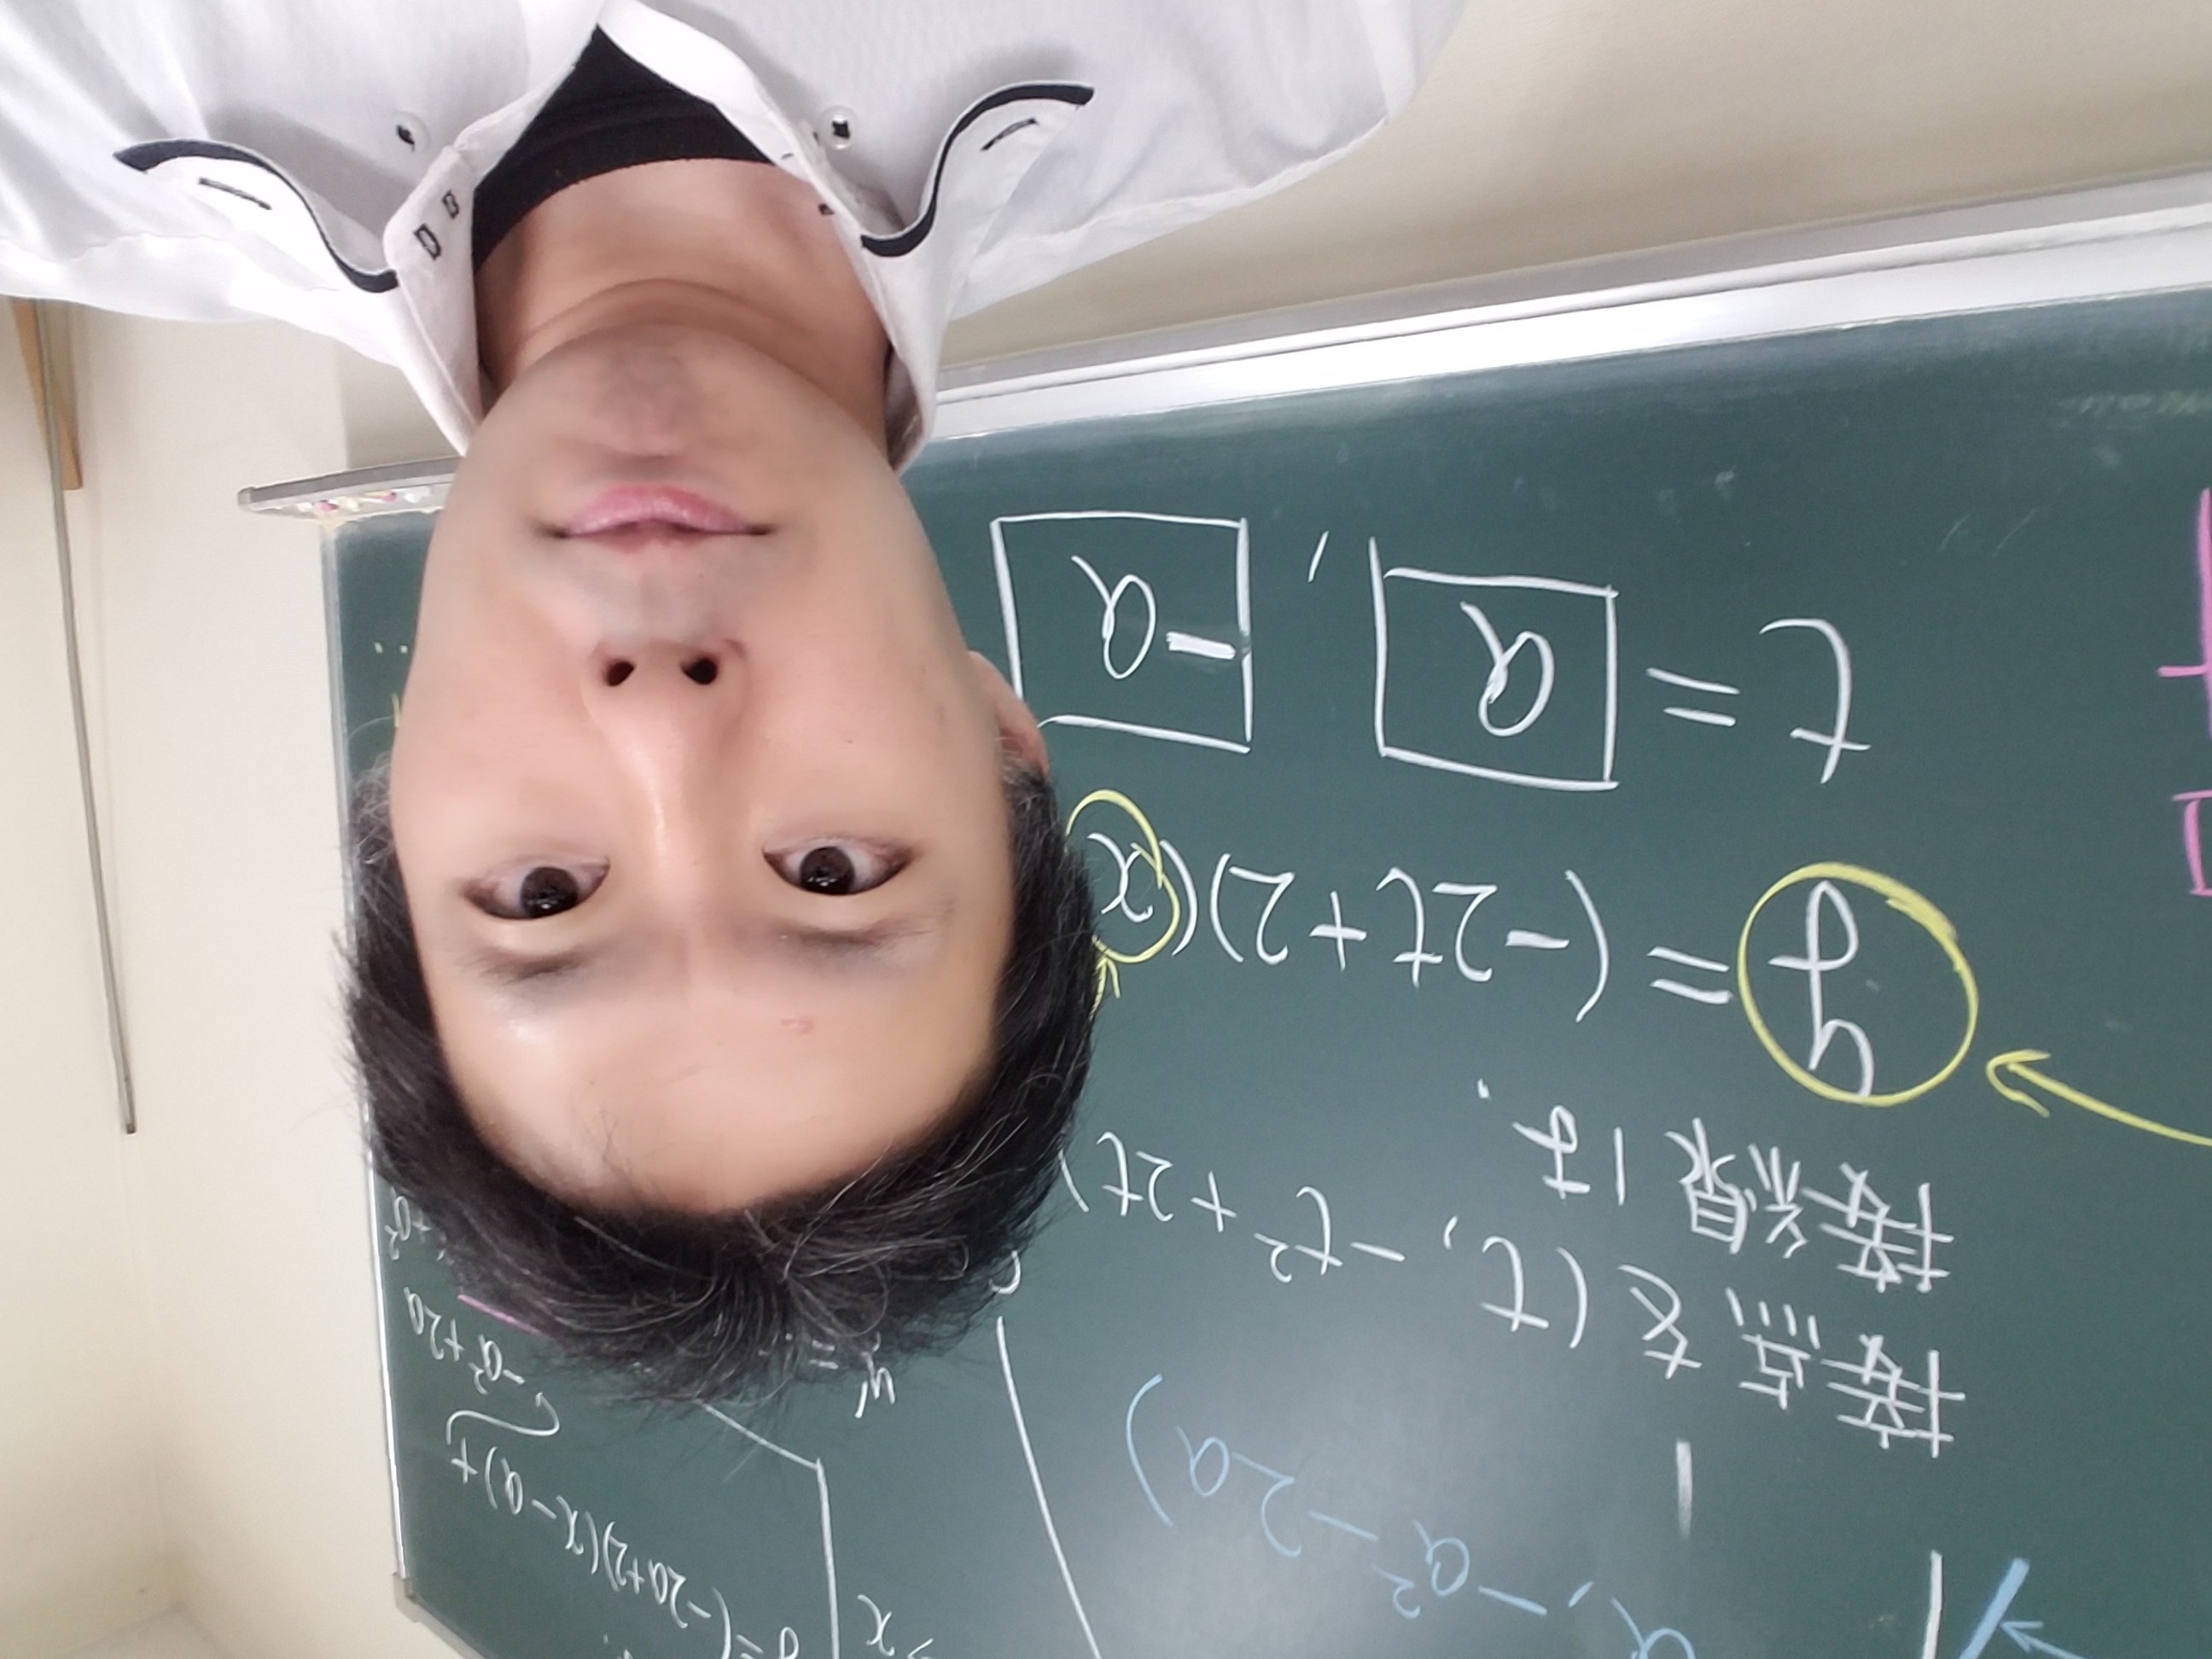 , -a² - 2a)
接点を(t, -t² + 2t)
接線は、
y = (-2t + 2)(x
t = a , -a
x
y = (-2a+2)(x-a) +
-a² + 2a
y' =
+a²